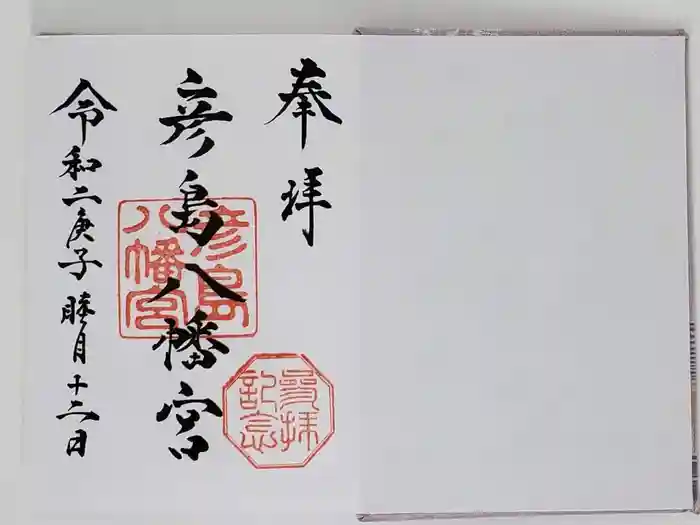 奉拝
彦島八幡宮
令和二庚子睦月十二日
彦島
八幡宮
参拝
記念